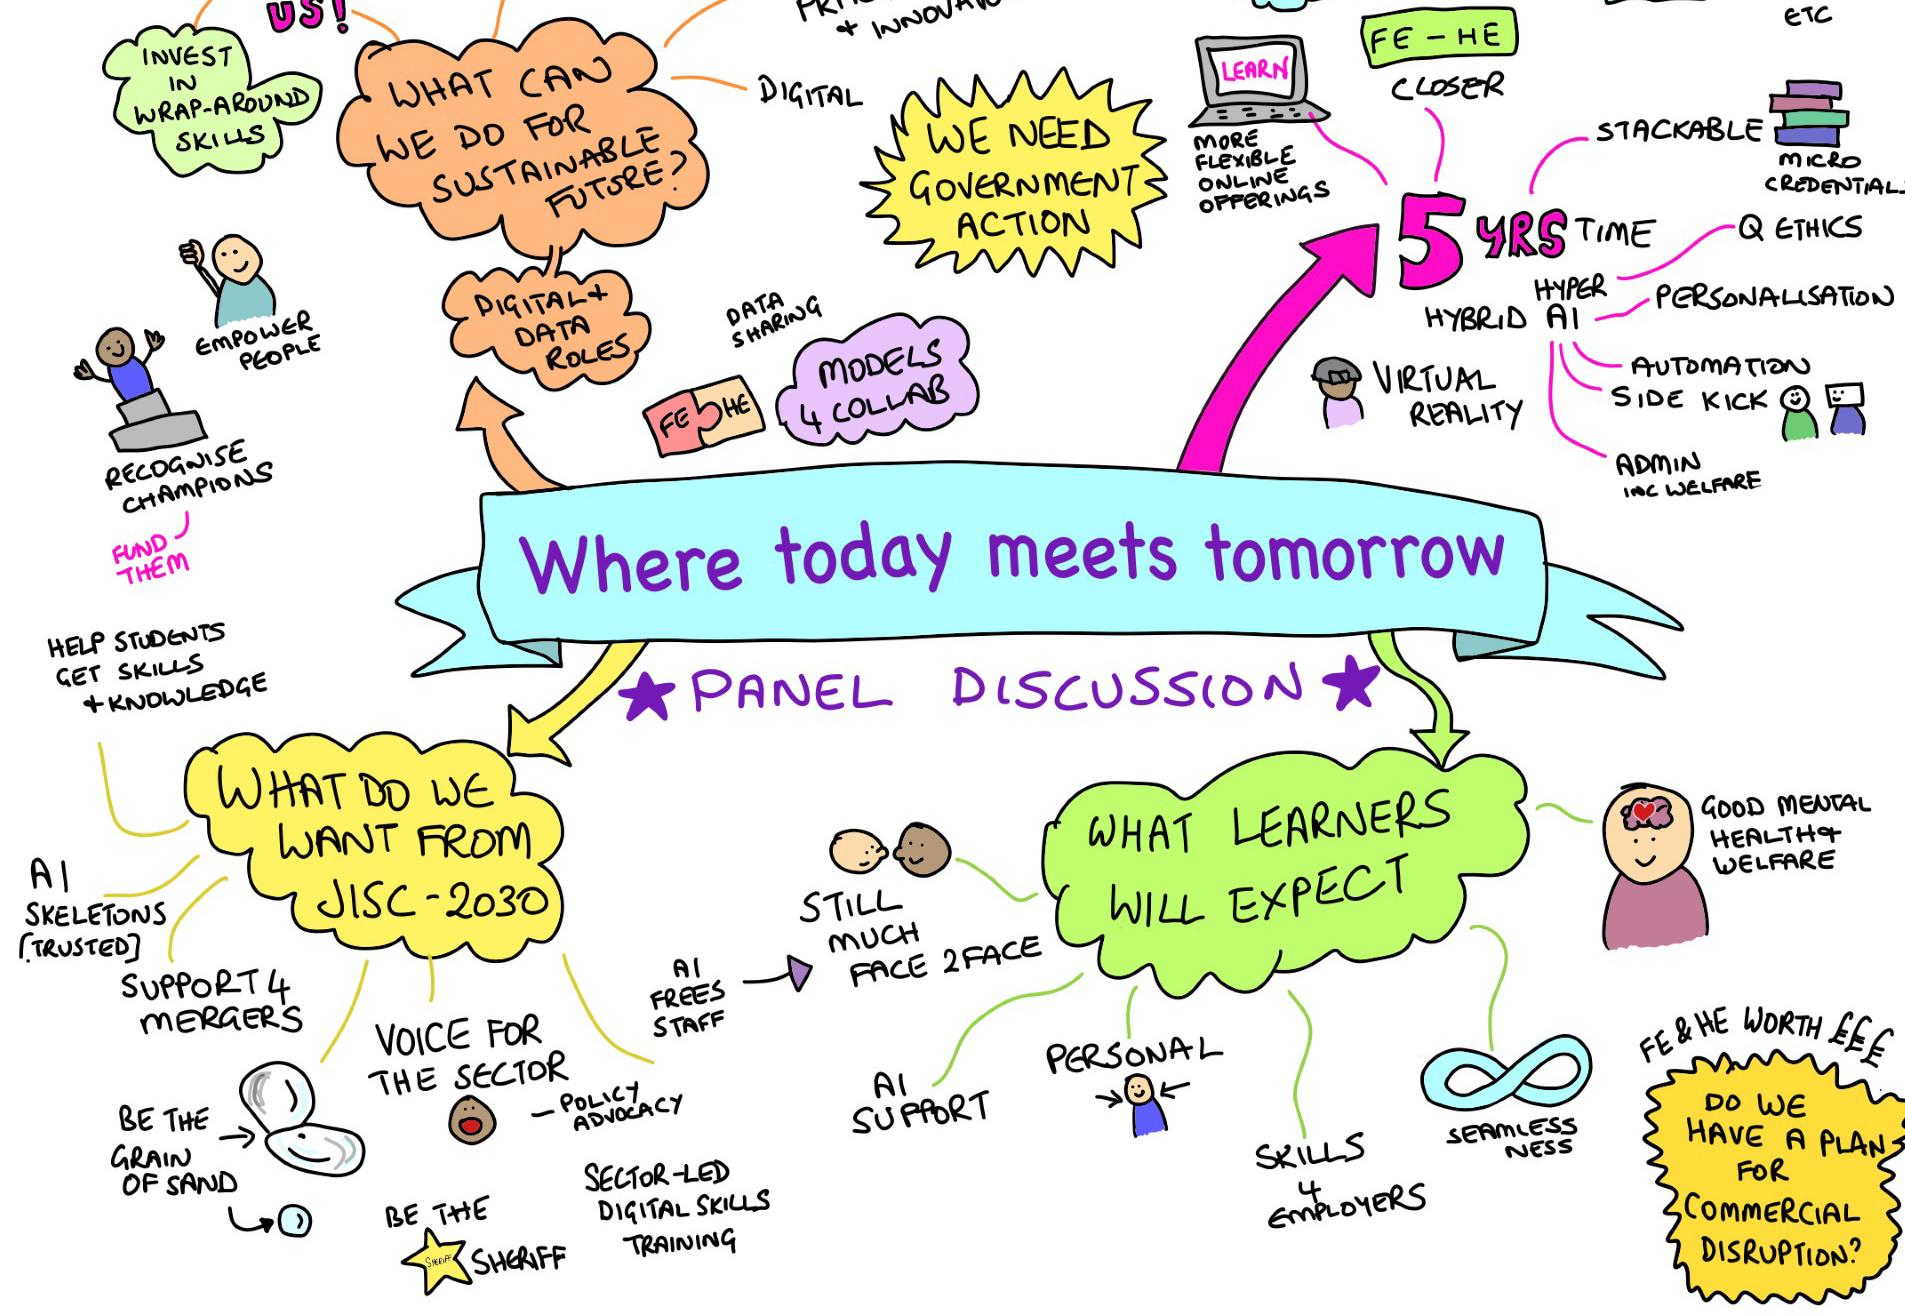 US!
INVEST
IN
WRAP-AROUND
SKILLS
WHAT CAN
WE DO FOR
SUSTAINABLE
FUTURE?
+ INNOVAT
DIGITAL
DIGITAL +
DATA
ROLES
WE NEED
GOVERNMENT
ACTION
EMPOWER
PEOPLE
RECOGNISE
CHAMPIONS
FUND
THEM
DATA
SHARING
FE HE
MODELS
4 COLLAB
LEARN
MORE
FLEXIBLE
ONLINE
OFFERINGS
FE - HE
CLOSER
ETC
STACKABLE
MICRO
CREDENTIALS
5 YRS TIME
Q ETHICS
HYPER
HYBRID AI
PERSONALISATION
AUTOMATION
SIDE KICK
ADMIN
INC WELFARE
VIRTUAL
REALITY
Where today meets tomorrow
PANEL DISCUSSION
HELP STUDENTS
GET SKILLS
+ KNOWLEDGE
WHAT DO WE
WANT FROM
JISC - 2030
AI
SKELETONS
[TRUSTED]
SUPPORT 4
MERGERS
BE THE
GRAIN
OF SAND
VOICE FOR
THE SECTOR
- POLICY
ADVOCACY
BE THE
SHERIFF
SHERIFF
SECTOR-LED
DIGITAL SKILLS
TRAINING
WHAT LEARNERS
WILL EXPECT
STILL
MUCH
FACE 2FACE
AI
FREES
STAFF
AI
SUPPORT
PERSONAL
SKILLS
4
EMPLOYERS
SEAMLESS
NESS
GOOD MENTAL
HEALTH +
WELFARE
FE & HE WORTH £££
DO WE
HAVE A PLAN
FOR
COMMERCIAL
DISRUPTION?